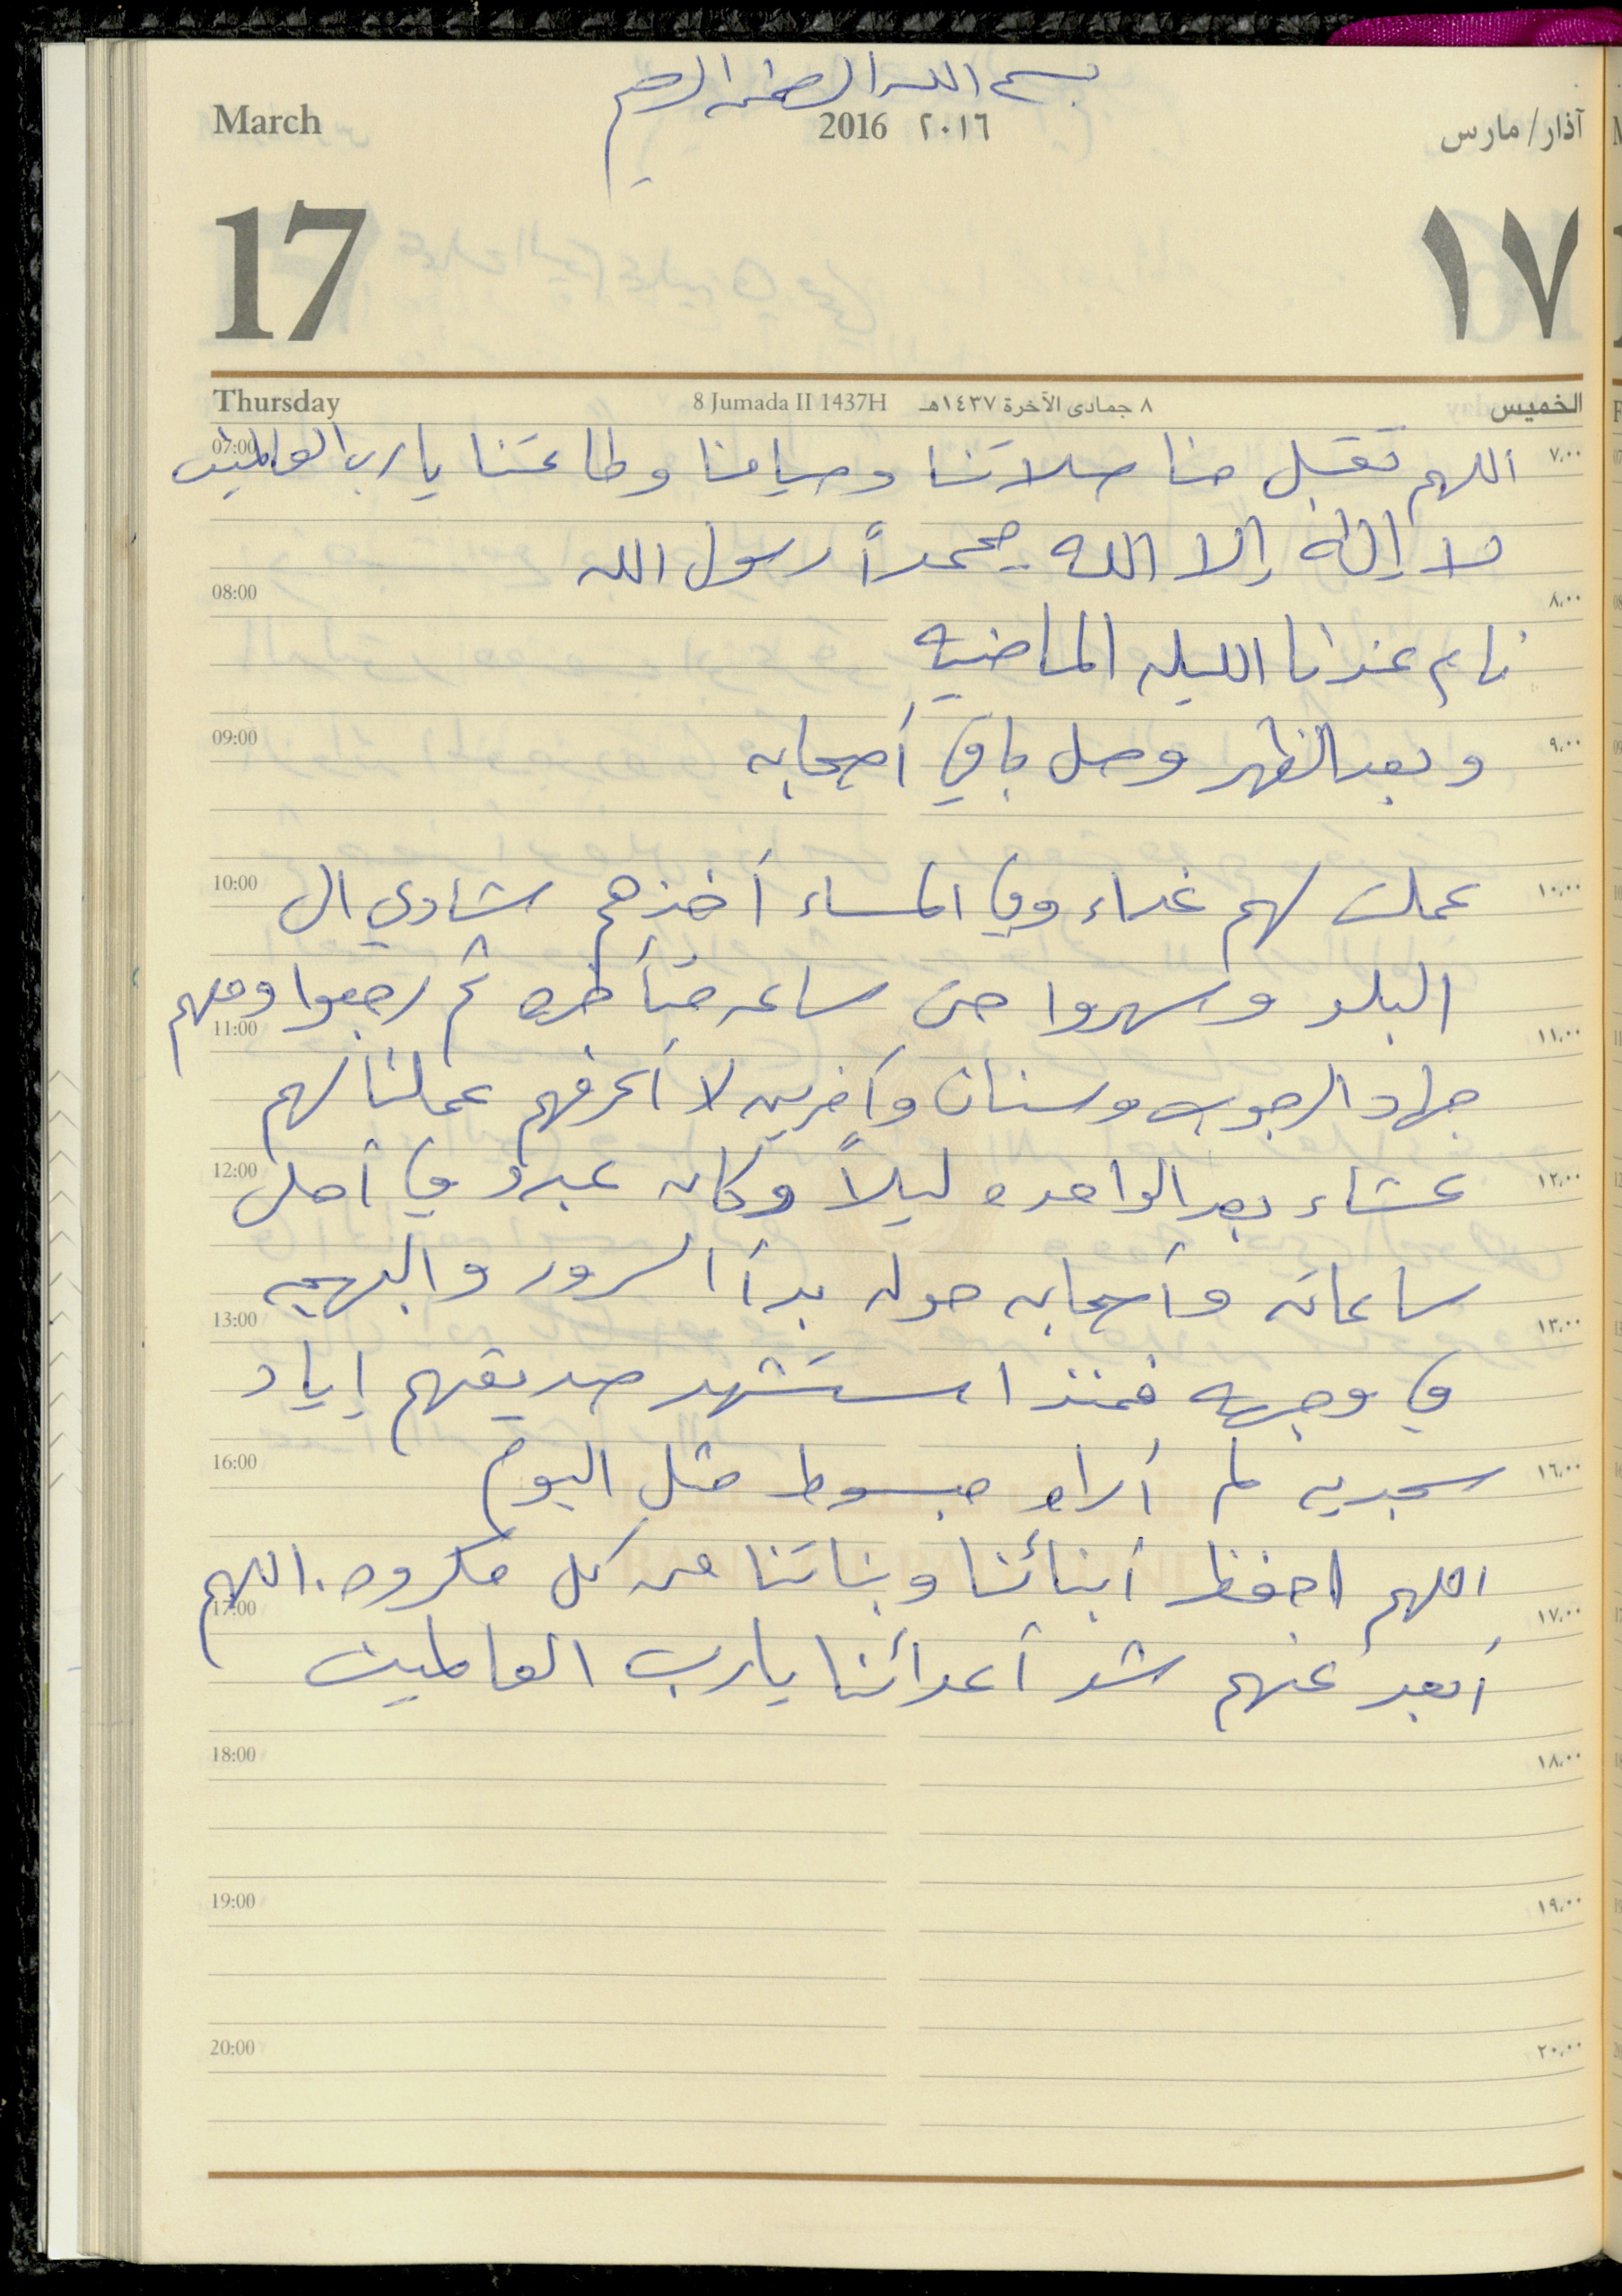 بسم الله الرحمن الرحيم
March 2016 ٢٠١٦ آذار/مارس
17 ١٧
Thursday 8 Jumada II 1437H ٨ جمادى الآخرة ١٤٣٧هـ الخميس
07:00 اللهم تقبل منا صلاتنا وصيامنا وطاعتنا يارب العالمين ٧،٠٠
لا إله إلا الله محمداً رسول الله
08:00 ٨،٠٠
نام عندنا الليله الماضيه
09:00 وبعد الظهر وصل باقي أصحابه ٩،٠٠
10:00 عملت لهم غداء وفي المساء أخذهم شادي ال ١٠،٠٠
البلد وسهروا حتى ساعه متأخره ثم رجعوا ومعهم
11:00 ١١،٠٠
جهاد الرجوب وسنان وآخرين لا أعرفهم عملنا لهم
12:00 عشاء بعد الواحده ليلاً وكان عبدو في أحلى ١٢،٠٠
ساعاته وأصحابه حوله بدأ السرور والبهجه
13:00 ١٣،٠٠
في وجهه فمنذ استشهد صديقهم إياد
16:00 سجديه لم أراه مبسوط مثل اليوم ١٦،٠٠
اللهم احفظ أبنائنا وبناتنا من كل مكروه. اللهم
17:00 ١٧،٠٠
أبعد عنهم شر أعدائنا يارب العالمين
18:00 ١٨،٠٠
19:00 ١٩،٠٠
20:00 ٢٠،٠٠